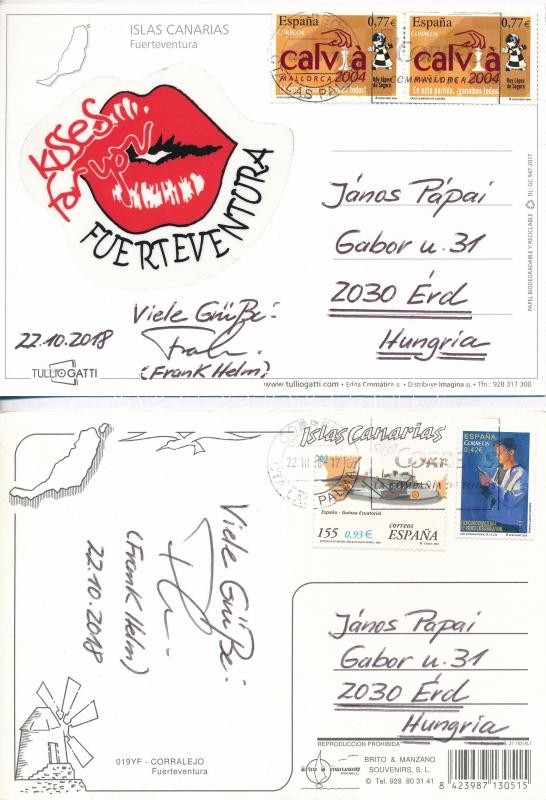 ISLAS CANARIAS
Fuerteventura
España 0,77€
CORREOS
calvià
MALLORCA 2004
Ruy López de Segura
España 0,77€
CORREOS
calvià
MALLORCA 2004
En esta partida, ¡ganamos todos!
Ruy López de Segura
KISSES....
FUERTEVENTURA
PAPEL BIODEGRADABLE Y RECICLABLE
DL: GC 947-2017
János Pápai
Gabor u. 31
2030 Érd
Hungria
Viele Grüße:
22.10.2018
(Frank Helm)
TULLIOGATTI
www.tulliogatti.com - Edita Cromática s.l. - Distribuye Imagina s.l. - Tfn.: 928 317 300
Islas Canarias
22 10 18 - 17
LAS PALMAS
LA COMPAÑÍA DE TODOS
España - Guinea Ecuatorial
155 0,93€ correos
ESPAÑA
ESPAÑA
CORREOS
0,42€
Viele Grüße:
(Frank Helm)
22.10.2018
János Papai
Gabor u. 31
2030 Érd
Hungria
019YF - CORRALEJO
Fuerteventura
REPRODUCCION PROHIBIDA
BRITO & MANZANO
SOUVENIRS, S. L.
© Tel. 928 80 31 41
8 423987 130515